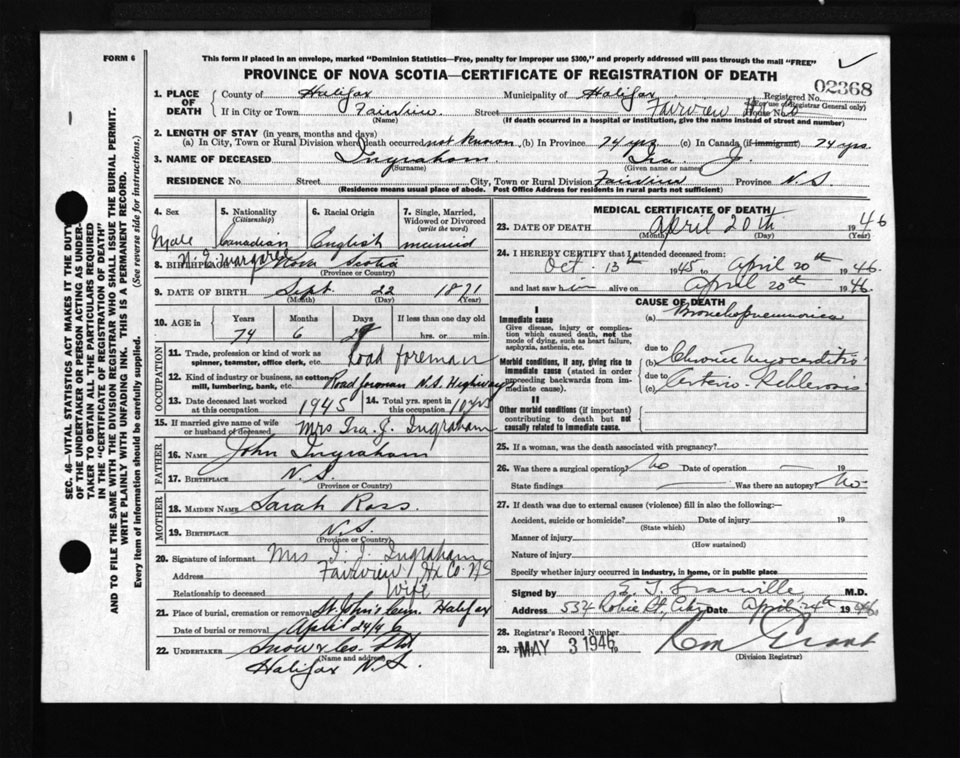 FORM 6
This form if placed in an envelope, marked "Dominion Statistics—Free, penalty for improper use $300," and properly addressed will pass through the mail "FREE"
PROVINCE OF NOVA SCOTIA—CERTIFICATE OF REGISTRATION OF DEATH
02368
1. PLACE OF DEATH
County of Halifax Municipality of Halifax Registered No.
(For use of Registrar General only)
If in City or Town Fairview Street Fairview House No.
(Name) (If death occurred in a hospital or institution, give the name instead of street and number)
2. LENGTH OF STAY (in years, months and days)
(a) In City, Town or Rural Division where death occurred not known (b) In Province 74 yrs (c) In Canada (if immigrant) 74 yrs.
3. NAME OF DECEASED Ingraham Ira J.
(Surname) (Given name or names)
RESIDENCE No Street City, Town or Rural Division Fairview Province N.S.
(Residence means usual place of abode. Post Office Address for residents in rural parts not sufficient)
4. Sex Male
5. Nationality (Citizenship) Canadian
6. Racial Origin English
7. Single, Married, Widowed or Divorced (write the word) married
8. BIRTHPLACE Nova Scotia
(Province or Country)
9. DATE OF BIRTH Sept. 22 1871
(Month) (Day) (Year)
10. AGE in Years Months Days If less than one day
74 6 hrs. or min.
OCCUPATION
11. Trade, profession or kind of work as spinner, teamster, office clerk, etc. Road foreman
12. Kind of industry or business, as cotton mill, lumbering, bank, etc. Road foreman N.S. Highway
13. Date deceased last worked at this occupation 1945
14. Total yrs. spent in this occupation 10 yrs
15. If married give name of wife or husband of deceased Mrs Ira J. Ingraham
FATHER
16. NAME John Ingraham
17. BIRTHPLACE N.S.
(Province or Country)
MOTHER
18. MAIDEN NAME Sarah Ross
19. BIRTHPLACE N.S.
(Province or Country)
20. Signature of informant Mrs I. J. Ingraham
Address Fairview Hx Co. N.S.
Relationship to deceased Wife
21. Place of burial, cremation or removal St. John's Cem. Halifax
Date of burial or removal April 24/46
22. UNDERTAKER Snow & Co. Ltd
(Name and address)
Halifax N.S.
MEDICAL CERTIFICATE OF DEATH
23. DATE OF DEATH April 20th 1946
(Month) (Day) (Year)
24. I HEREBY CERTIFY that I attended deceased from:
Oct. 13th 1945 to April 20th 1946.
and last saw him alive on April 20th 1946.
CAUSE OF DEATH
I
Immediate cause
Give disease, injury or complication which caused death, not the mode of dying, such as heart failure, asphyxia, asthenia, etc.
(a) Bronchopneumonia
due to
Morbid conditions, if any, giving rise to immediate cause (stated in order proceeding backwards from immediate cause)
(b) Chronic Myocarditis
due to
(c) Arterio-Sclerosis
II
Other morbid conditions (if important) contributing to death but not causally related to immediate cause.
25. If a woman, was the death associated with pregnancy?
26. Was there a surgical operation? No Date of operation — 19
State findings — Was there an autopsy? No.
27. If death was due to external causes (violence) fill in also the following:—
Accident, suicide or homicide? Date of injury 19
(State which)
Manner of injury
(How sustained)
Nature of injury
Specify whether injury occurred in industry, in home, or in public place
Signed by E. T. Granville M.D.
Address 534 Robie St, City Date April 24th 1946.
28. Registrar's Record Number
29. MAY 3 1946 19
(Division Registrar)
SEC. 46—VITAL STATISTICS ACT MAKES IT THE DUTY OF THE UNDERTAKER OR PERSON ACTING AS UNDERTAKER TO OBTAIN ALL THE PARTICULARS REQUIRED IN THE "CERTIFICATE OF REGISTRATION OF DEATH" AND TO FILE THE SAME WITH THE DIVISION REGISTRAR WHO SHALL ISSUE THE BURIAL PERMIT.
WRITE PLAINLY WITH UNFADING INK. THIS IS A PERMANENT RECORD.
Every item of information should be carefully supplied. (See reverse side for instructions.)